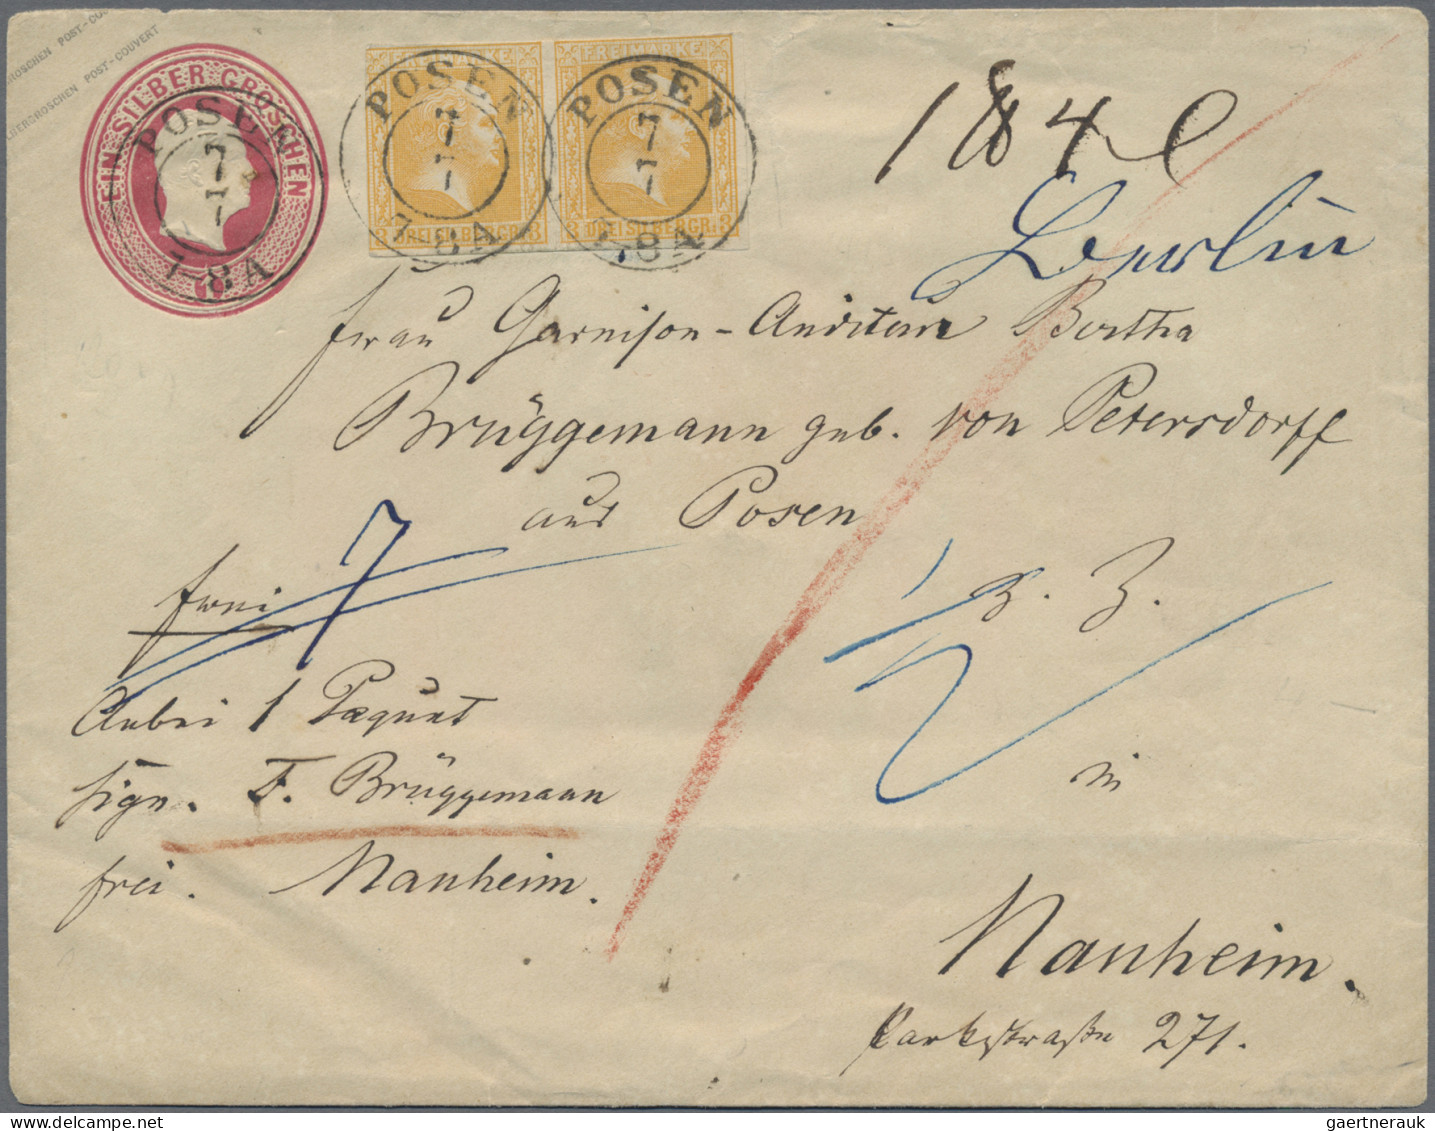 GROSCHEN POST-COUVERT
SILBERGROSCHEN POST-COUVERT
EIN SILBER GROSCHEN
POSEN
7
7
7-8A
FREIMARKE
3 DREI SILBERGR. 3
POSEN
7
7
7-8A
FREIMARKE
3 DREI SILBERGR. 3
POSEN
7
7
7-8A
Berlin
Frau Garnison-Auditeur Bertha
Brüggemann geb. von Petersdorff
aus Posen
frei
7
z. Z.
Anbei 1 Paquet
sign. F. Brüggemann
frei. Manheim.
in
Manheim.
Parkstraße 271.
gaertnerauk